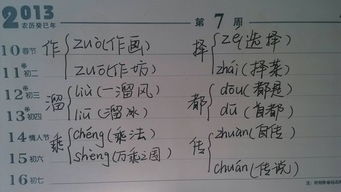 2013 第7周
农历癸巳年
10 春节 作 zuò(作画) 择 zé(选择)
11 初二 zuō(作坊) zhái(择菜)
12 初三 溜 liù(一溜风) 都 dōu(都是)
13 初四 liū(溜冰) dū(首都)
14 情人节 乘 chéng(乘法) 传 zhuàn(自传)
15 初六 shèng(万乘之国)
16 初七 chuán(传说)